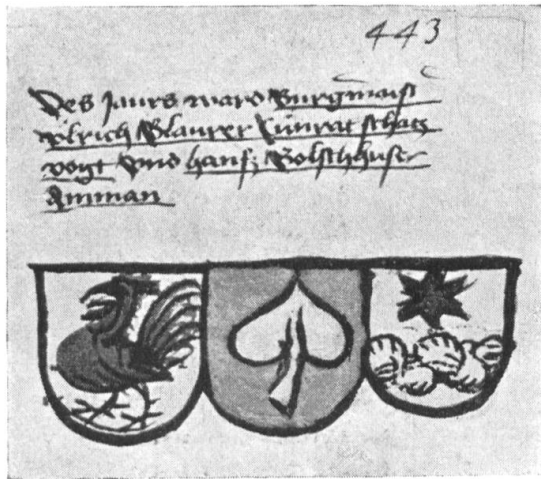 443
Des Jaurs ward Burgmaist
Ulrich Blaurer Cunrat schatz
vogt Und hans Bolschhuser
Amman